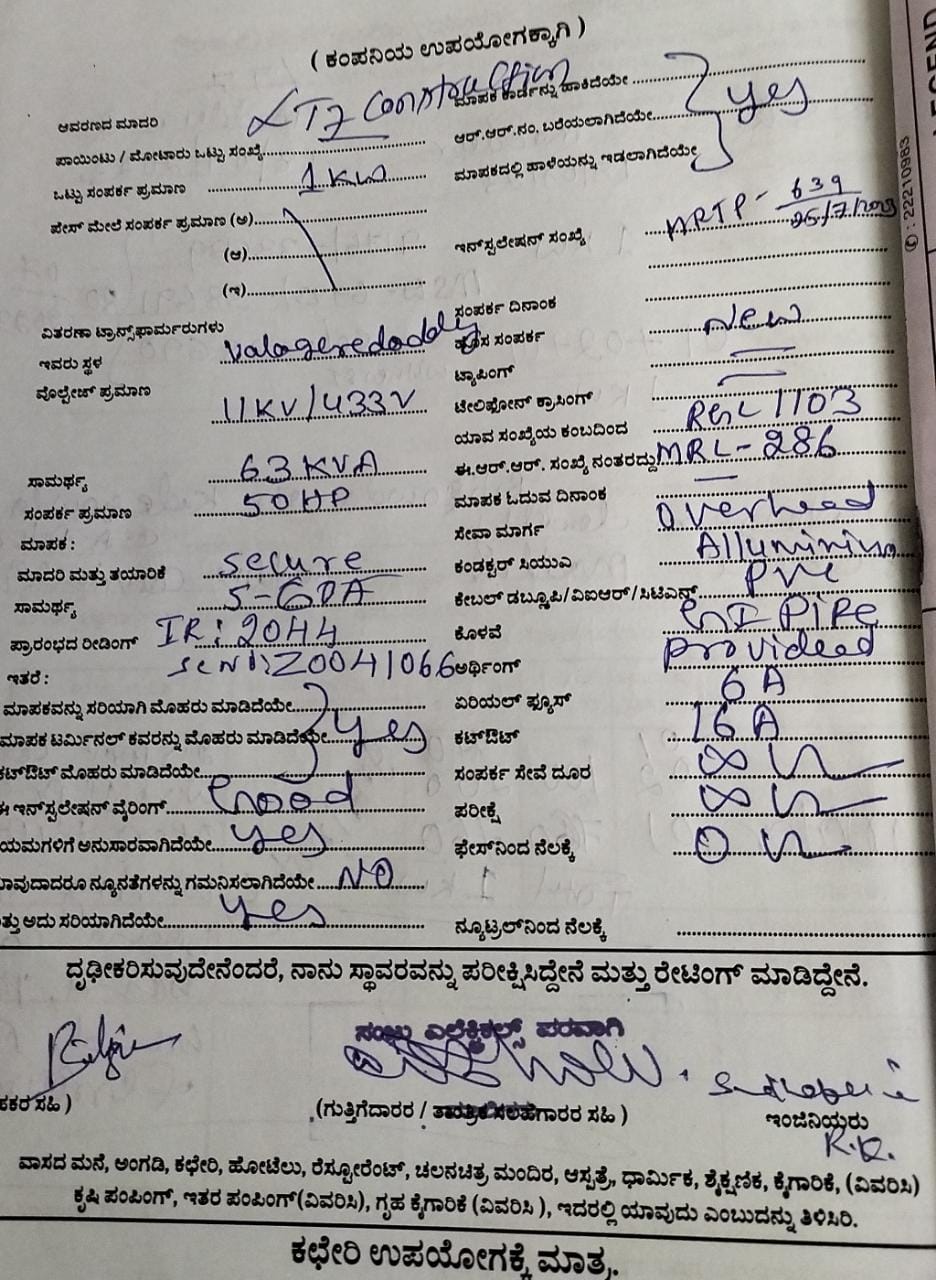 ( ಕಂಪನಿಯ ಉಪಯೋಗಕ್ಕಾಗಿ )
ಆವರಣದ ಮಾದರಿ LT7 Construction
ಪಾಯಿಂಟು / ಮೋಟಾರು ಒಟ್ಟು ಸಂಖ್ಯೆ
ಒಟ್ಟು ಸಂಪರ್ಕ ಪ್ರಮಾಣ 1 KW
ಪೇಸ್ ಮೇಲೆ ಸಂಪರ್ಕ ಪ್ರಮಾಣ (ಅ)
(ಆ)
(ಇ)
ವಿತರಣಾ ಟ್ರಾನ್ಸ್‌ಫಾರ್ಮರುಗಳು
ಇವರು ಸ್ಥಳ Valageredoddi
ವೊಲ್ಟೇಜ್ ಪ್ರಮಾಣ 11KV/433V
ಸಾಮರ್ಥ್ಯ 63 KVA
ಸಂಪರ್ಕ ಪ್ರಮಾಣ 50 HP
ಮಾಪಕ :
ಮಾದರಿ ಮತ್ತು ತಯಾರಿಕೆ Secure
ಸಾಮರ್ಥ್ಯ 5-60A
ಪ್ರಾರಂಭದ ರೀಡಿಂಗ್ IR: 2044
ಇತರೆ : Z0041066
ಮಾಪಕವನ್ನು ಸರಿಯಾಗಿ ಮೊಹರು ಮಾಡಿದೆಯೇ
ಮಾಪಕ ಟರ್ಮಿನಲ್ ಕವರನ್ನು ಮೊಹರು ಮಾಡಿದೆಯೇ yes
ಕಟ್‌ಔಟ್ ಮೊಹರು ಮಾಡಿದೆಯೇ
ಈ ಇನ್‌ಸ್ಟಲೇಷನ್ ವೈರಿಂಗ್ Good
ಯಮಗಳಿಗೆ ಅನುಸಾರವಾಗಿದೆಯೇ yes
ಾವುದಾದರೂ ನ್ಯೂನತೆಗಳನ್ನು ಗಮನಿಸಲಾಗಿದೆಯೇ NO
ತ್ತು ಅದು ಸರಿಯಾಗಿದೆಯೇ yes
ಮಾಪಕ ಕಾರ್ಡನ್ನು ಹಾಕಿದೆಯೇ
ಆರ್.ಆರ್.ನಂ. ಬರೆಯಲಾಗಿದೆಯೇ yes
ಮಾಪಕದಲ್ಲಿ ಹಾಳೆಯನ್ನು ಇಡಲಾಗಿದೆಯೇ
ಇನ್‌ಸ್ಟಲೇಷನ್ ಸಂಖ್ಯೆ MRTP - 639
ಸಂಪರ್ಕ ದಿನಾಂಕ
ಹೊಸ ಸಂಪರ್ಕ New
ಟ್ಯಾಪಿಂಗ್
ಟೇಲಿಫೋನ್ ಕ್ರಾಸಿಂಗ್
ಯಾವ ಸಂಖ್ಯೆಯ ಕಂಬದಿಂದ 1103
ಈ.ಆರ್.ಆರ್. ಸಂಖ್ಯೆ ನಂತರದ್ದು MRL-286
ಮಾಪಕ ಓದುವ ದಿನಾಂಕ
ಸೇವಾ ಮಾರ್ಗ Overhead
ಕಂಡಕ್ಟರ್ ಸಿಯುಎ Alluminium
ಕೇಬಲ್ ಡಬ್ಲೂಪಿ/ವಿಐಆರ್/ಸಿಟಿಎಸ್ PVC
ಕೊಳವೆ GI PIPE
ಅರ್ಥಿಂಗ್ Provideed
ಏರಿಯಲ್ ಫ್ಯೂಸ್ 6 A
ಕಟ್‌ಔಟ್ 16 A
ಸಂಪರ್ಕ ಸೇವೆ ದೂರ
ಪರೀಕ್ಷೆ
ಫೇಸ್‌ನಿಂದ ನೆಲಕ್ಕೆ
ನ್ಯೂಟ್ರಲ್‌ನಿಂದ ನೆಲಕ್ಕೆ
ದೃಢೀಕರಿಸುವುದೇನೆಂದರೆ, ನಾನು ಸ್ಥಾವರವನ್ನು ಪರೀಕ್ಷಿಸಿದ್ದೇನೆ ಮತ್ತು ರೇಟಿಂಗ್ ಮಾಡಿದ್ದೇನೆ.
ಎಲೆಕ್ಟ್ರಿಕಲ್ಸ್ ಪರವಾಗಿ
ಕರ ಸಹಿ )
(ಗುತ್ತಿಗೆದಾರರ / ಸಲಹೆಗಾರರ ಸಹಿ )
ಇಂಜಿನಿಯರು
K.R.
ವಾಸದ ಮನೆ, ಅಂಗಡಿ, ಕಛೇರಿ, ಹೋಟೆಲು, ರೆಸ್ಟೋರೆಂಟ್, ಚಲನಚಿತ್ರ ಮಂದಿರ, ಆಸ್ಪತ್ರೆ, ಧಾರ್ಮಿಕ, ಶೈಕ್ಷಣಿಕ, ಕೈಗಾರಿಕೆ, (ವಿವರಿಸಿ)
ಕೃಷಿ ಪಂಪಿಂಗ್, ಇತರ ಪಂಪಿಂಗ್(ವಿವರಿಸಿ), ಗೃಹ ಕೈಗಾರಿಕೆ (ವಿವರಿಸಿ ), ಇದರಲ್ಲಿ ಯಾವುದು ಎಂಬುದನ್ನು ತಿಳಿಸಿರಿ.
ಕಛೇರಿ ಉಪಯೋಗಕ್ಕೆ ಮಾತ್ರ.
LEGEND
✆ : 22210983